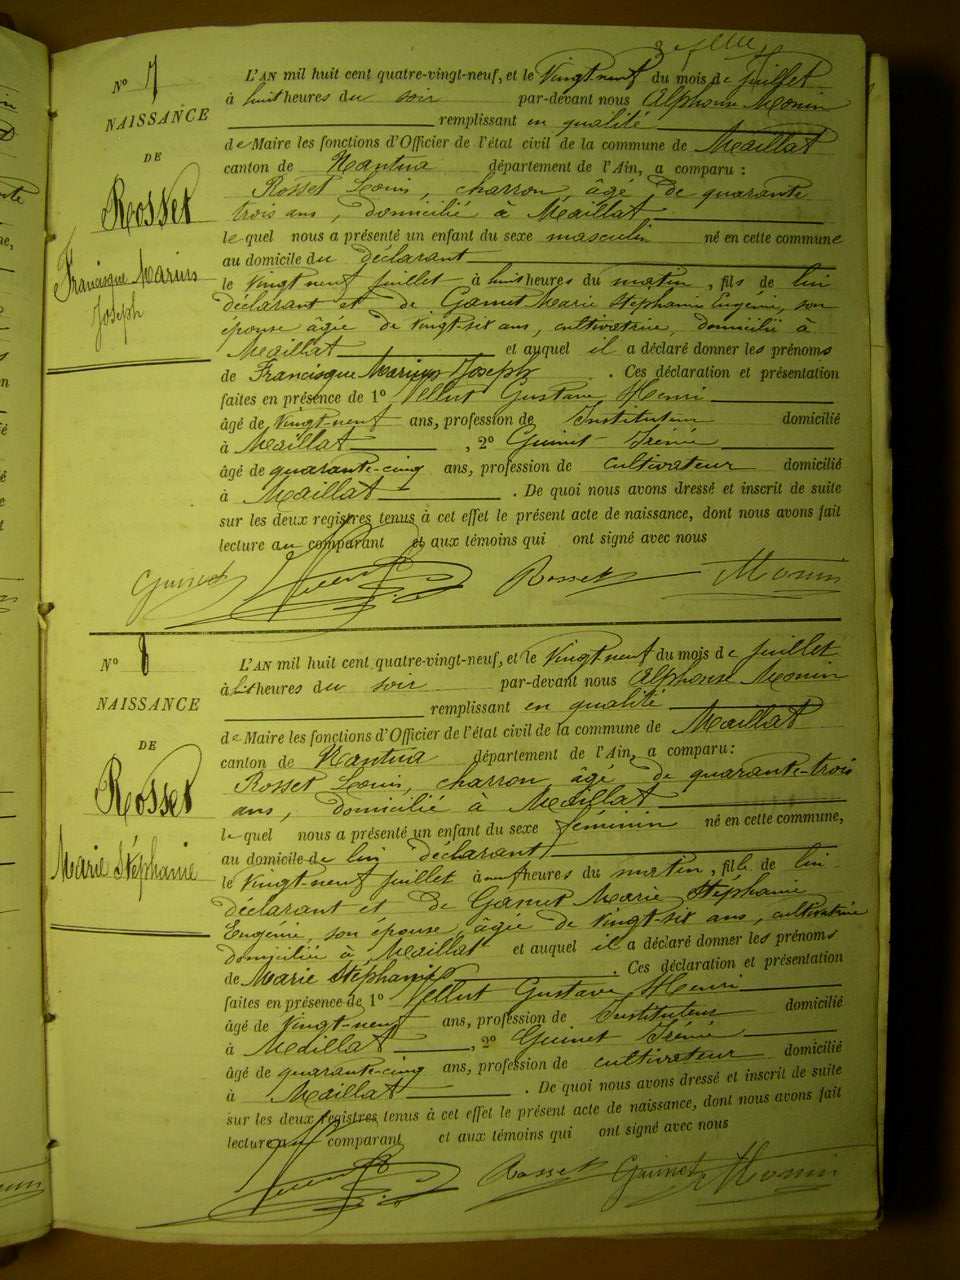 N° 7
NAISSANCE
DE
Rosset
Francisque Marius
Joseph
L'AN mil huit cent quatre-vingt-neuf, et le Vingt neuf du mois de juillet
à huit heures du soir par-devant nous Alphonse Monin
remplissant en qualité
de Maire les fonctions d'Officier de l'état civil de la commune de Maillat
canton de Nantua département de l'Ain, a comparu :
Rosset Louis, charron, âgé de quarante
trois ans, domicilié à Maillat
lequel nous a présenté un enfant du sexe masculin né en cette commune
au domicile du déclarant
le Vingt neuf juillet à huit heures du matin, fils de lui
déclarant et de Gamet Marie Stéphanie Eugénie, son
épouse âgée de vingt-six ans, cultivatrice, domicilié à
Maillat et auquel il a déclaré donner les prénoms
de Francisque Marius Joseph . Ces déclaration et présentation
faites en présence de 1° Vellut Gustave Henri
âgé de vingt-neuf ans, profession de Instituteur domicilié
à Maillat , 2° Guinet Irénée
âgé de quarante-cinq ans, profession de cultivateur domicilié
à Maillat . De quoi nous avons dressé et inscrit de suite
sur les deux registres tenus à cet effet le présent acte de naissance, dont nous avons fait
lecture au comparant et aux témoins qui ont signé avec nous
Guinet Rosset Monin
N° 8
NAISSANCE
DE
Rosset
Marie Stéphanie
L'AN mil huit cent quatre-vingt-neuf, et le Vingt neuf du mois de juillet
à huit heures du soir par-devant nous Alphonse Monin
remplissant en qualité
de Maire les fonctions d'Officier de l'état civil de la commune de Maillat
canton de Nantua département de l'Ain, a comparu :
Rosset Louis, charron, âgé de quarante-trois
ans, domicilié à Maillat
lequel nous a présenté un enfant du sexe féminin né en cette commune,
au domicile de lui déclarant
le Vingt-neuf juillet à neuf heures du matin, fille de lui
déclarant et de Gamet Marie Stéphanie
Eugénie, son épouse, âgée de vingt-six ans, cultivatrice
domiciliée à Maillat et auquel il a déclaré donner les prénoms
de Marie Stéphanie . Ces déclaration et présentation
faites en présence de 1° Vellut Gustave Henri
âgé de Vingt-neuf ans, profession de Instituteur domicilié
à Maillat , 2° Guinet Irénée
âgé de quarante-cinq ans, profession de cultivateur domicilié
à Maillat . De quoi nous avons dressé et inscrit de suite
sur les deux registres tenus à cet effet le présent acte de naissance, dont nous avons fait
lecture au comparant et aux témoins qui ont signé avec nous
Rosset Guinet Monin